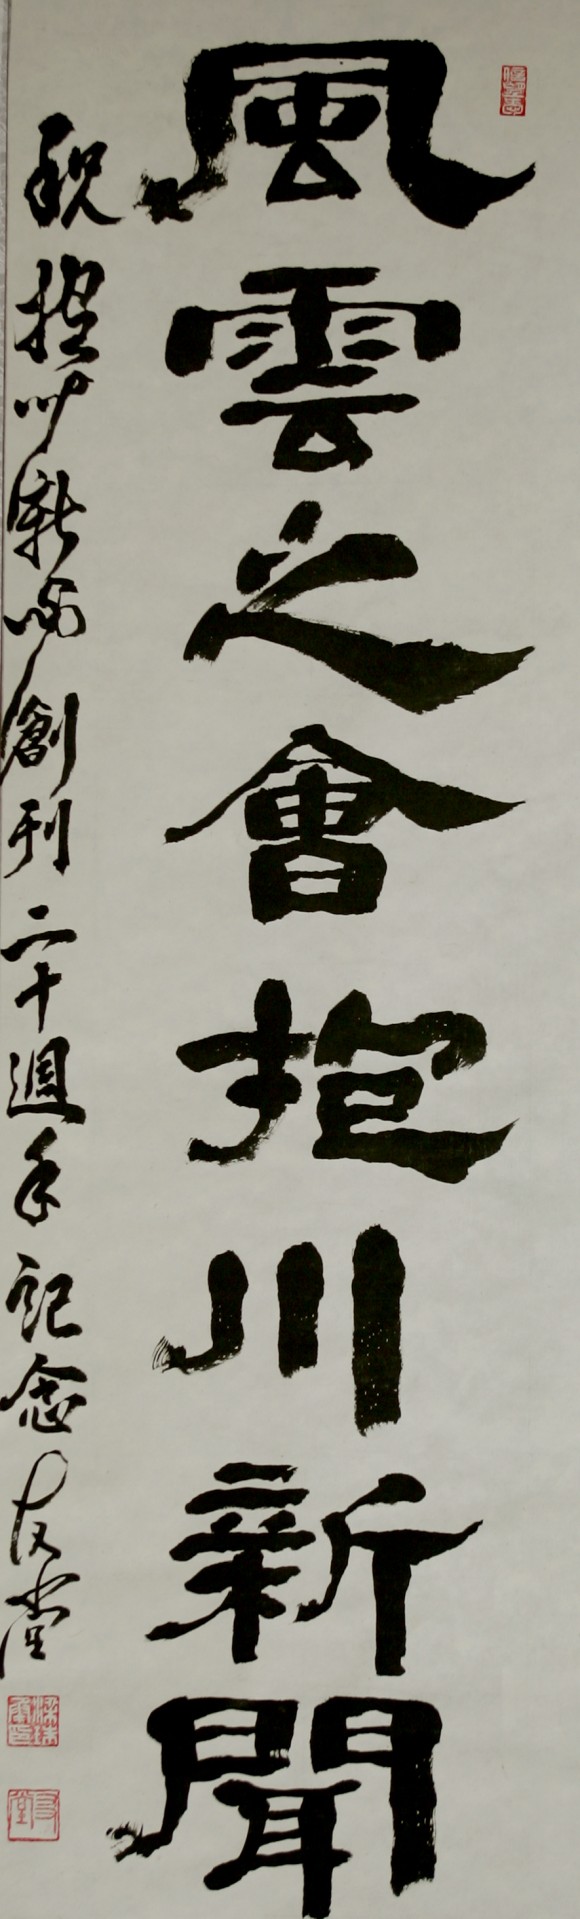 風雲之會抱川新聞
祝抱川新聞創刊二十週年記念友堂